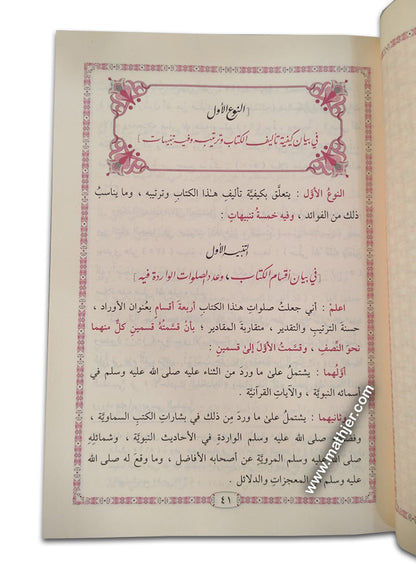 [النوع الأول
في بيان كيفية تأليف الكتاب وترتيبه وفيه تنبيهات]
النوعُ الأوّل : يتعلَّق بكيفيَّة تأليفِ هـٰذا الكتابِ وترتيبه ، وما يناسبُ
ذلك من الفوائد ، وفيه خمسةُ تنبيهاتٍ :
التنبيه الأول
[في بيان أقسام الكتاب ، وعدد الصلوات الواردة فيه]
اعلمْ : أني جعلتُ صلواتِ هـٰذا الكتابِ أربعةَ أقسامٍ بعُنوان الأوراد ،
حسنةَ الترتيبِ والتقدير ، متقاربةَ المقادير ؛ بأنْ قسَّمتُهُ قسمينِ كلٌّ منهما
نحوَ النِّصفِ ، وقسَّمتُ الأوَّلَ إلىٰ قسمينِ :
أوَّلُهما : يشتملُ علىٰ ما وردَ من الثناء عليه صلى الله عليه وسلم في
أسمائه النبويَّة ، والآياتِ القرآنيَّة .
وثانيهما : يشتملُ علىٰ ما وردَ مِن ذلك في بشارات الكتبِ السماويَّة ،
صلى الله عليه وسلم الواردةِ في الأحاديث النبويَّة ، وشمائلِهِ
صلى الله عليه وسلم المرويَّةِ عن أصحابه الأفاضل ، وما وقعَ له صلى الله
عليه وسلم من المعجزاتِ والدلائل .
٤١
www.mathjer.com